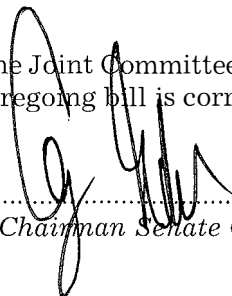 ne Joint Committee
regoing bill is corr
Chairman Senate